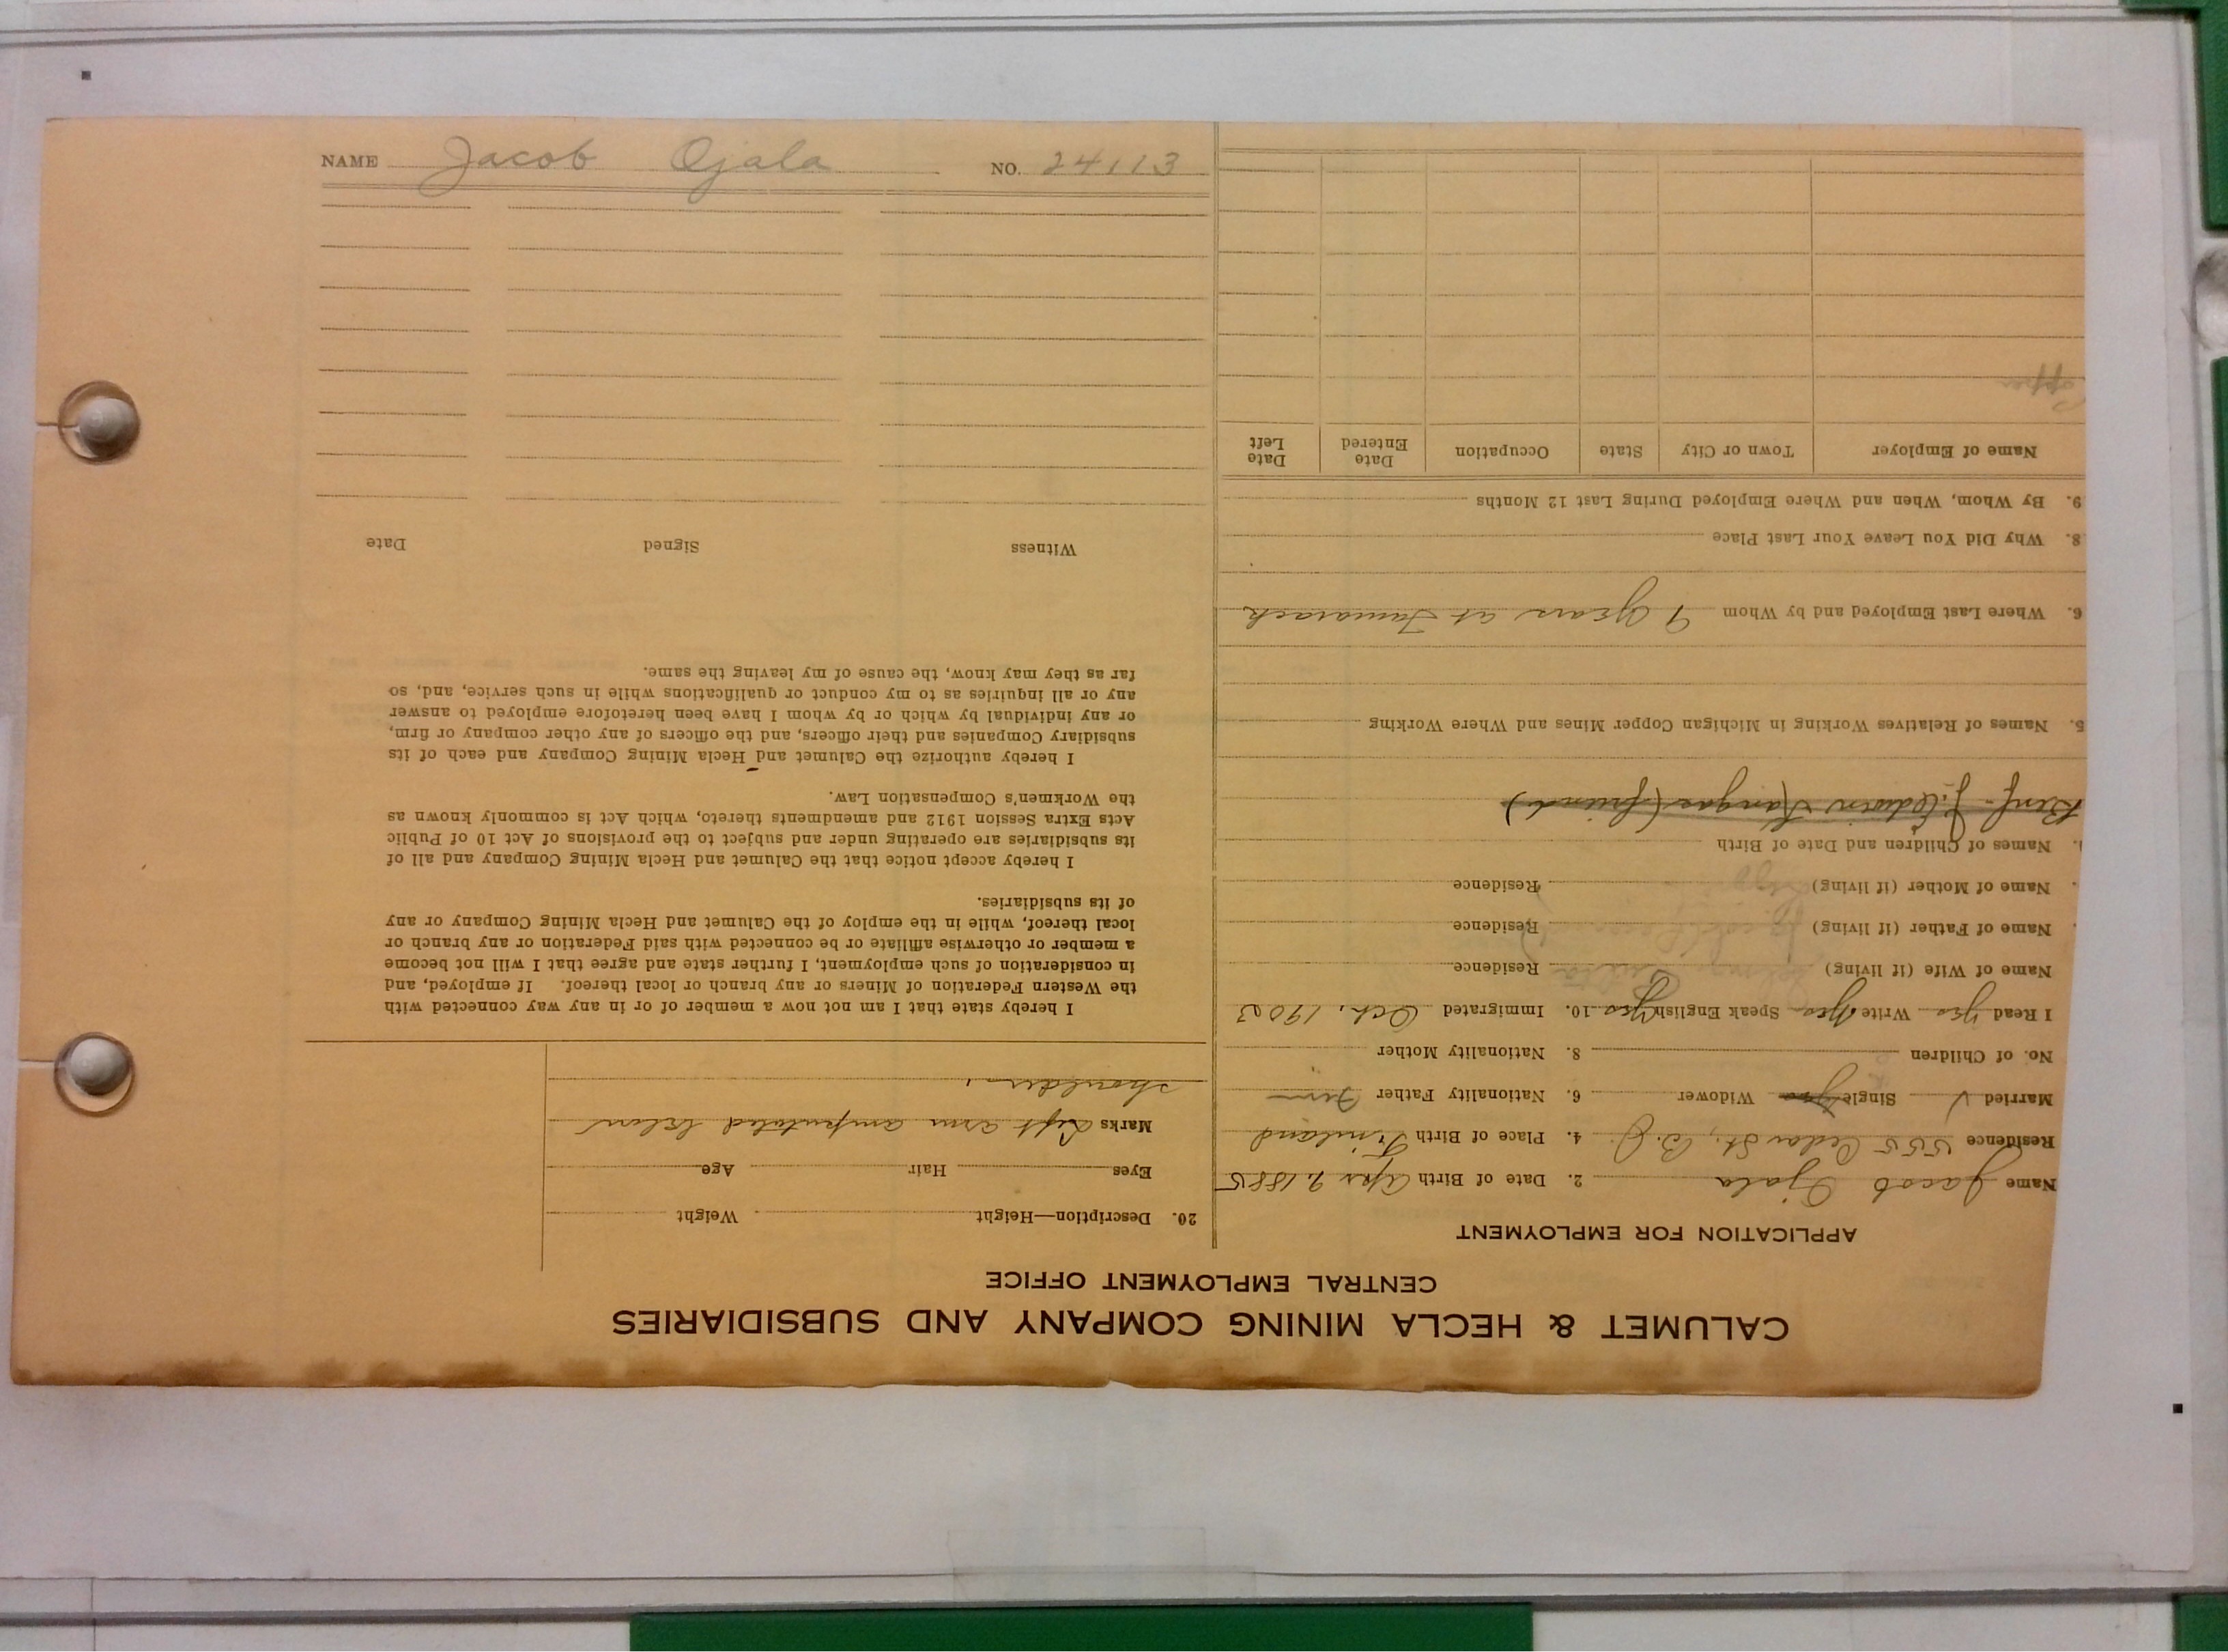 CALUMET & HECLA MINING COMPANY AND SUBSIDIARIES
CENTRAL EMPLOYMENT OFFICE
APPLICATION FOR EMPLOYMENT
Name Jacob Ojala 2. Date of Birth Apr 9, 1885
Residence 555 Cedar St., 4. Place of Birth Finland
Married √ Single Yes Widower 6. Nationality Father Finn
No. of Children 8. Nationality Mother
I Read Yes Write Yes Speak English Yes 10. Immigrated Oct. 1903
Name of Wife (if living) Residence
Name of Father (if living) Residence
Name of Mother (if living) Residence
Names of Children and Date of Birth
Benf- J. Edwin Kangas (friend)
5. Names of Relatives Working in Michigan Copper Mines and Where Working
6. Where Last Employed and by Whom 9 years at Tamarack
8. Why Did You Leave Your Last Place
9. By Whom, When and Where Employed During Last 12 Months
Name of Employer Town or City State Occupation Date Entered Date Left
Copper
20. Description—Height Weight
Eyes Hair Age
Marks Left arm amputated below
shoulder.
I hereby state that I am not now a member of or in any way connected with
the Western Federation of Miners or any branch or local thereof. If employed, and
in consideration of such employment, I further state and agree that I will not become
a member or otherwise affiliate or be connected with said Federation or any branch or
local thereof, while in the employ of the Calumet and Hecla Mining Company or any
of its subsidiaries.
I hereby accept notice that the Calumet and Hecla Mining Company and all of
its subsidiaries are operating under and subject to the provisions of Act 10 of Public
Acts Extra Session 1912 and amendments thereto, which Act is commonly known as
the Workmen's Compensation Law.
I hereby authorize the Calumet and Hecla Mining Company and each of its
subsidiary Companies and their officers, and the officers of any other company or firm,
or any individual by which or by whom I have been heretofore employed to answer
any or all inquiries as to my conduct or qualifications while in such service, and, so
far as they may know, the cause of my leaving the same.
Witness Signed Date
NAME Jacob Ojala NO. 24113